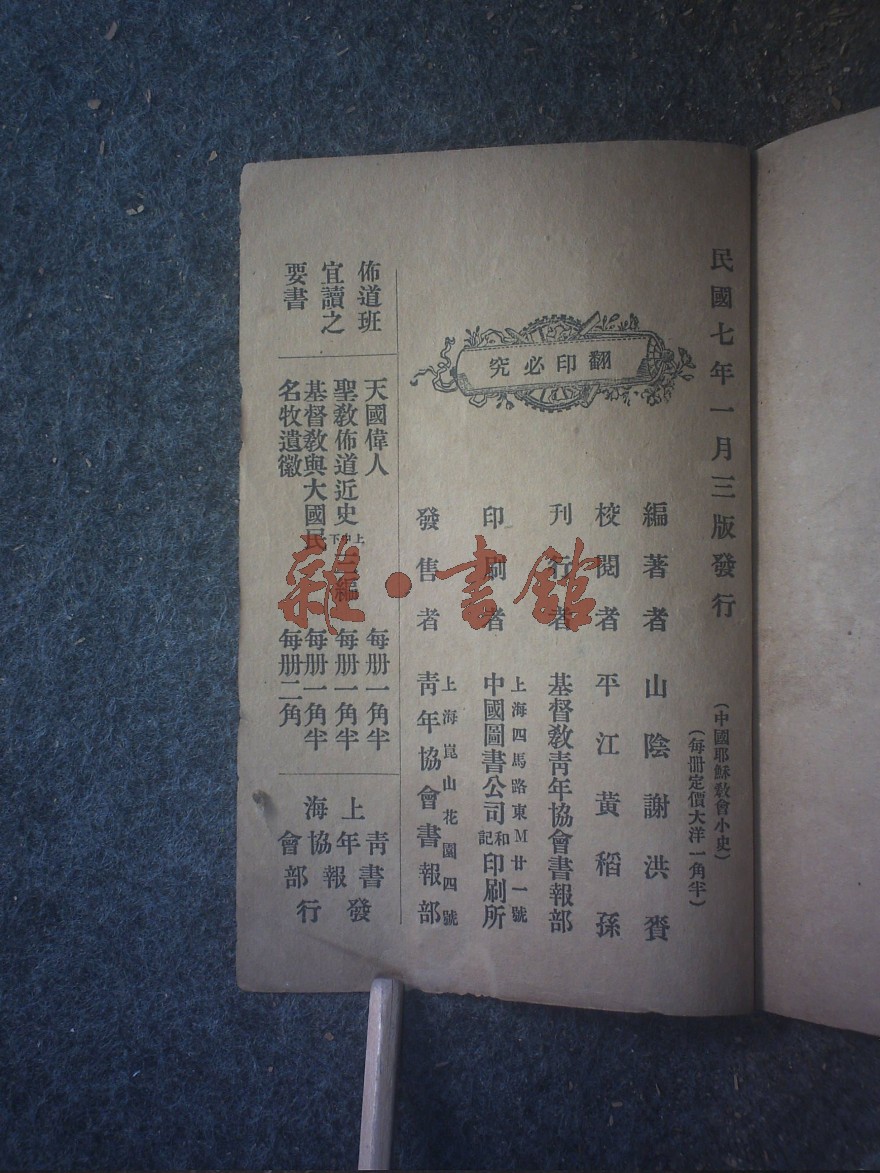 民國七年一月三版發行
(中國耶穌教會小史)
(每冊定價大洋一角半)
翻印必究
編著者 山陰謝洪賚
校閱者 平江黃稻孫
刊行者 基督教靑年協會書報部
印刷者 上海四馬路東M廿一號
中國圖書公司和記印刷所
發售者 上海崑山花園四號
靑年協會書報部
佈道班
宜讀之
要書
天國偉人 每冊一角半
聖教佈道近史 上中下三編 每冊一角半
基督教與大國民 每冊一角半
名牧遺徽 每冊二角
上海
靑年協會
書報部
發行
雜·書館